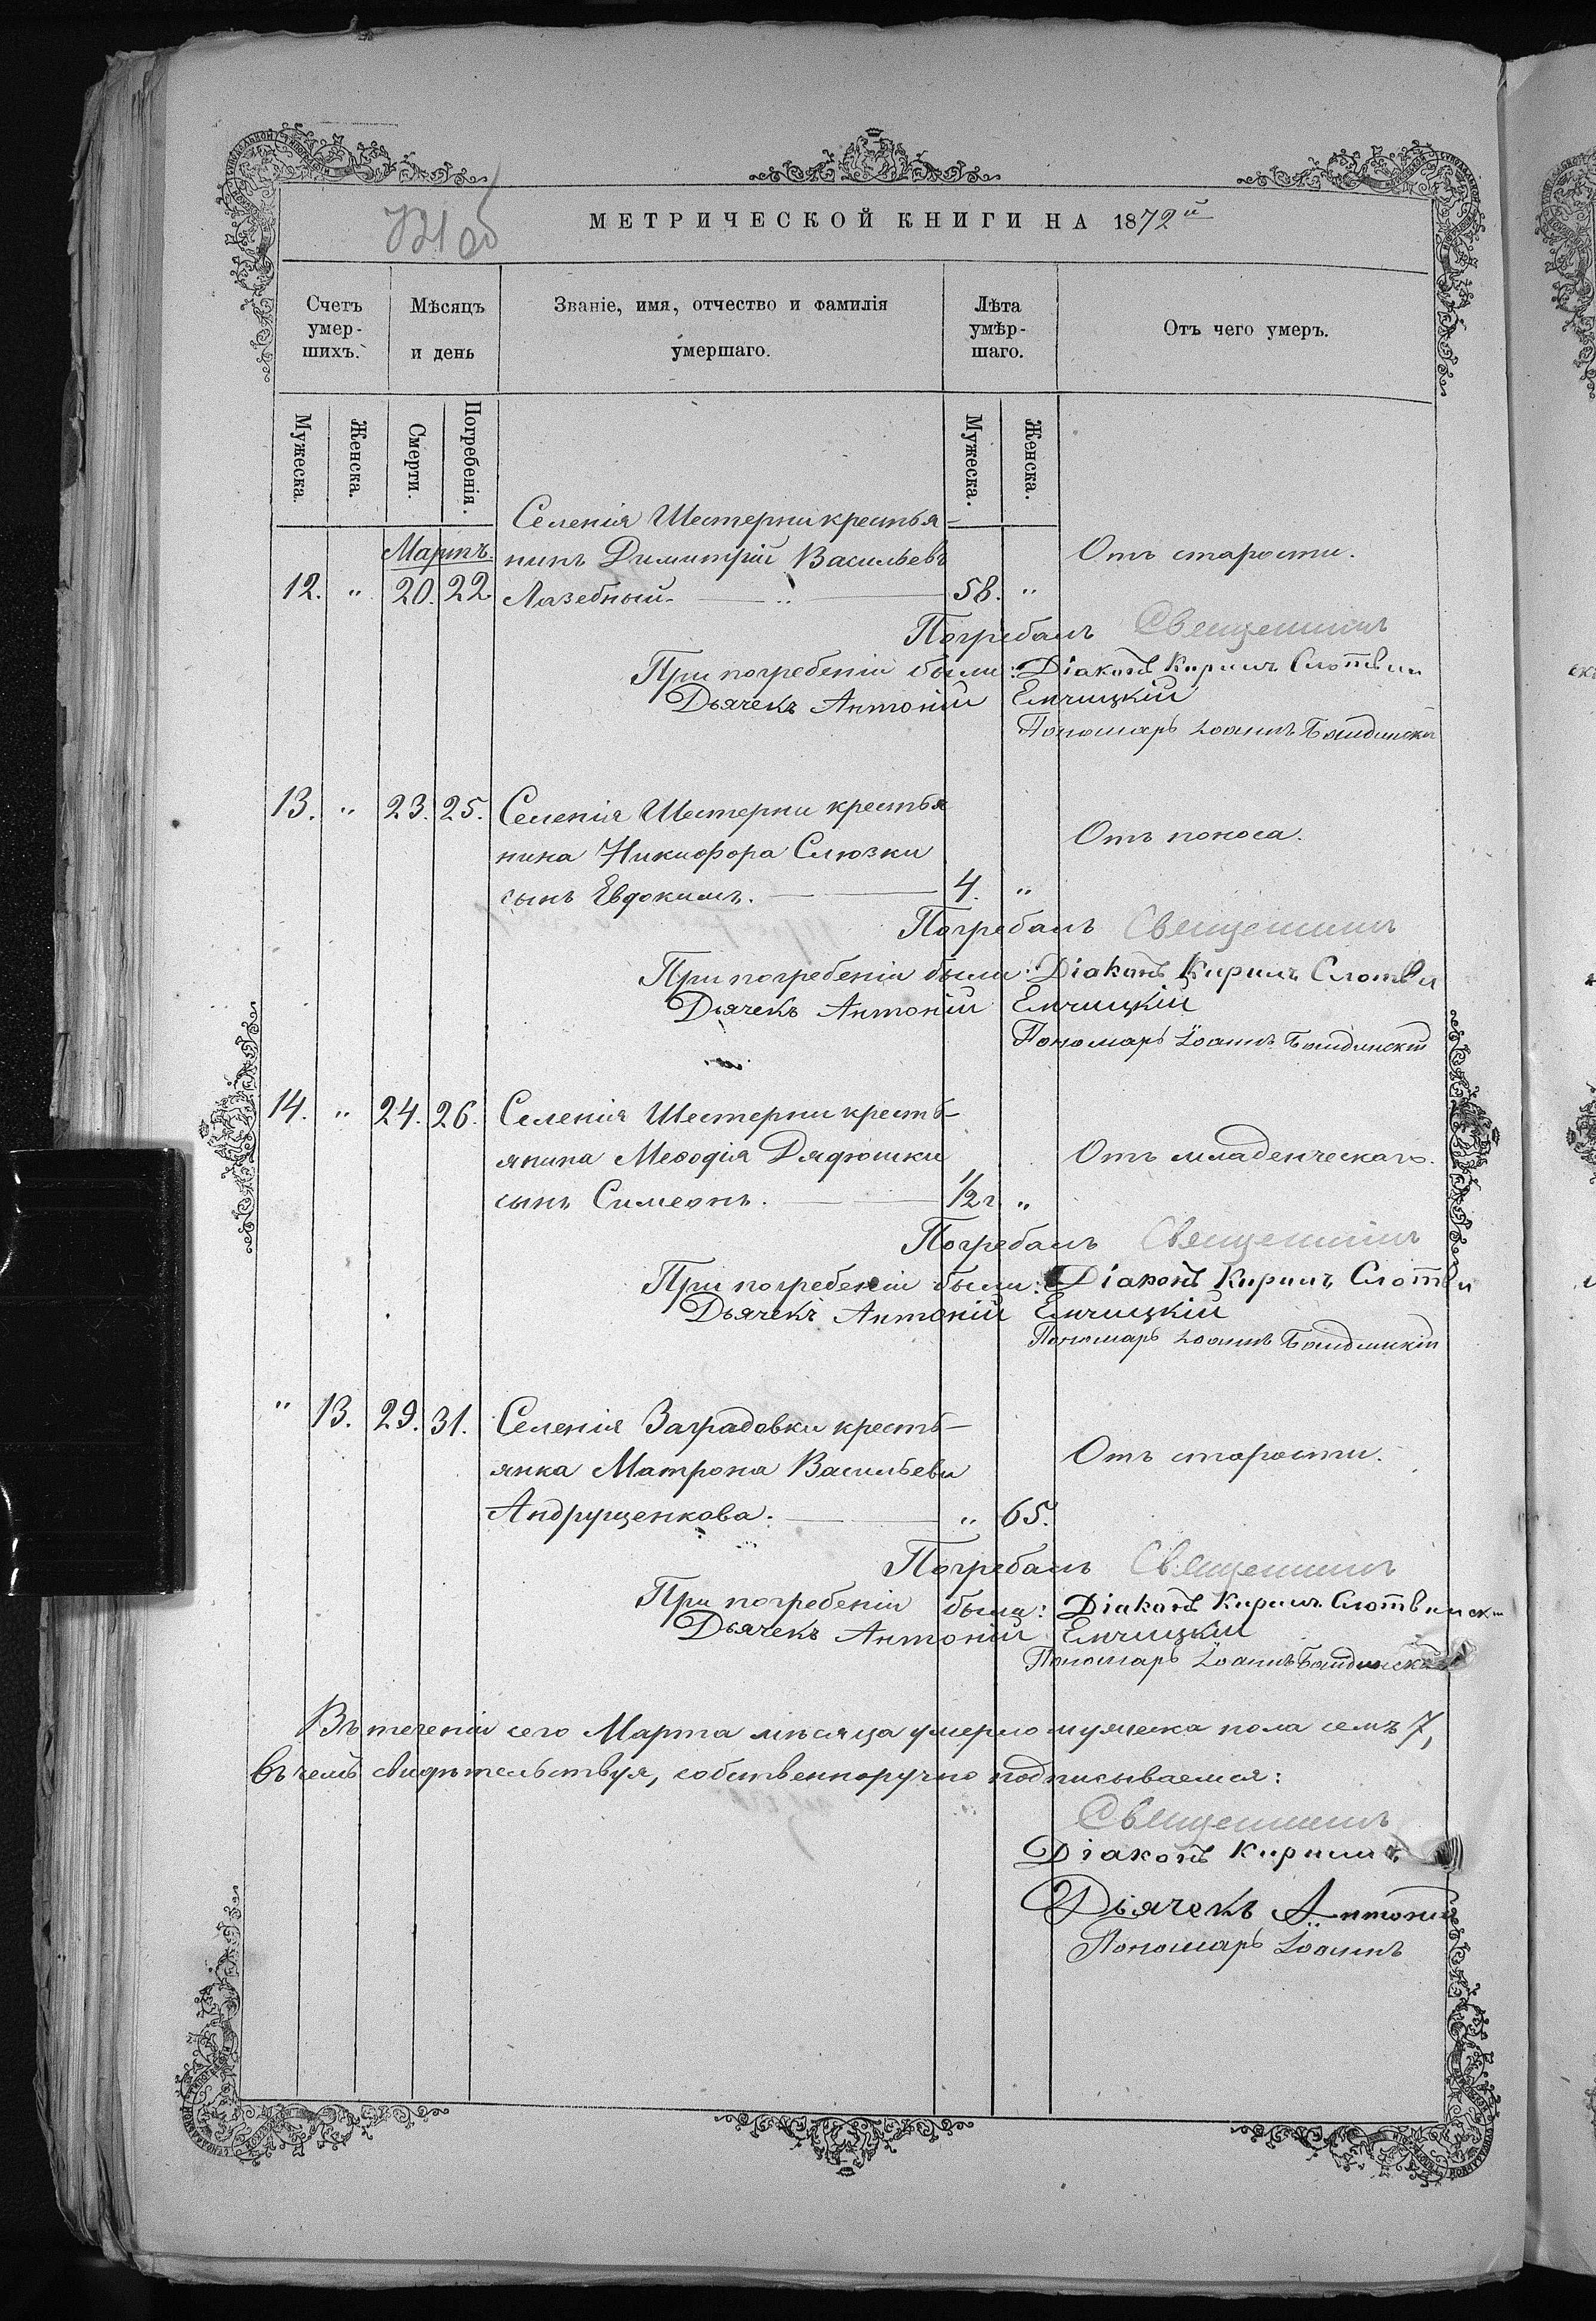 МЕТРИЧЕСКОЙ КНИГИ НА 1872й
Счетъ умер-шихъ.
Мѣсяцъ и день
Званіе, имя, отчество и фамилія умершаго.
Лѣта умѣр-шаго.
Отъ чего умеръ.
Мужеска. Женска. Смерти. Погребенія. Мужеска. Женска.
Селенія Шестерни крестья-
Мартъ. нинъ Димитрій Васильевъ Отъ старости.
12. " 20. 22. Лазебный. 58. "
Погребалъ Священникъ
При погребеніи были: Діаконъ Кирилъ
Дьячекъ Антоній Емчицкій
Пономарь Іоаннъ
13. " 23. 25. Селенія Шестерни крестья
нина Никифора Слюзки Отъ поноса.
сынъ Евдокимъ. 4. "
Погребалъ Священникъ
При погребеніи были: Діаконъ Кирилъ
Дьячекъ Антоній Емчицкій
Пономарь Іоаннъ
14. " 24. 26. Селенія Шестерни кресть-
янина Меѳодія Дядюшки Отъ младенческаго.
сынъ Симеонъ. 1/2 г. "
Погребалъ Священникъ
При погребеніи были: Діаконъ Кирилъ
Дьячекъ Антоній Емчицкій
Пономарь Іоаннъ
" 13. 29. 31. Селенія Заградовки кресть-
янка Матрона Васильева Отъ старости.
Андрущенкова. " 65.
Погребалъ Священникъ
При погребеніи были: Діаконъ Кирилъ
Дьячекъ Антоній Емчицкій
Пономарь Іоаннъ
Въ теченіи сего Марта мѣсяца умерло мужеска пола семъ 7,
въ чемъ свидѣтельствуя, собственноручно подписываемся:
Священникъ
Діаконъ Кирилъ
Дьячекъ Антоній
Пономарь Іоаннъ